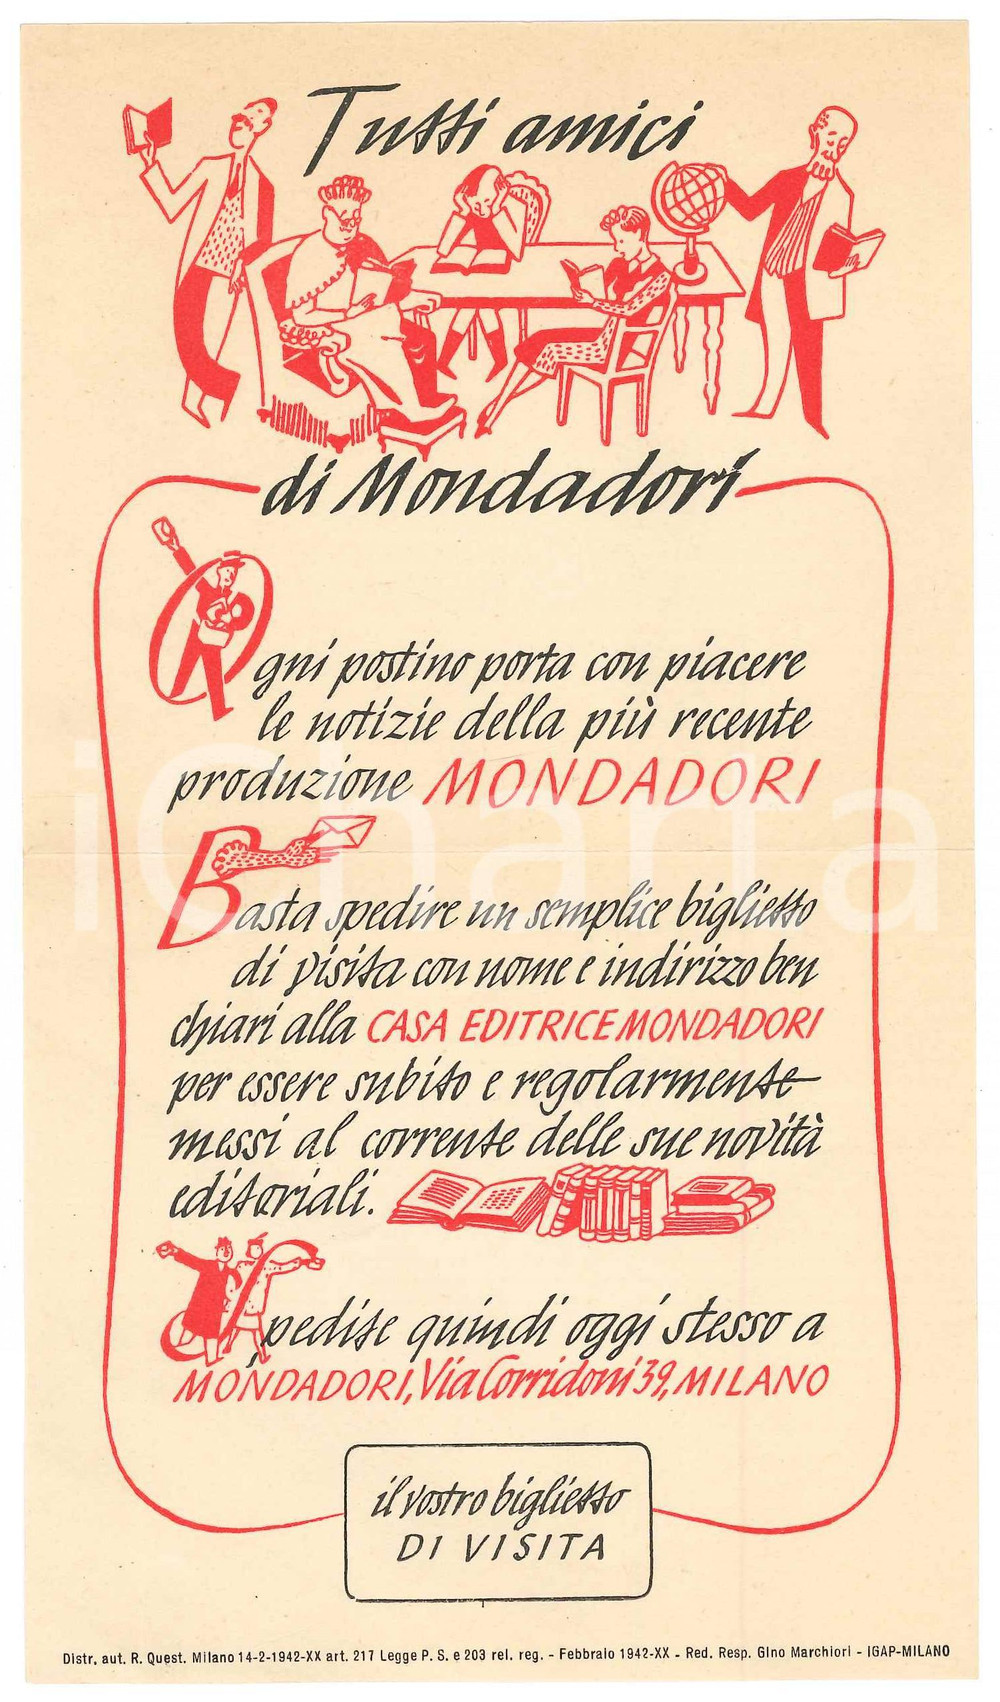 Tutti amici
di Mondadori
Ogni postino porta con piacere
le notizie della più recente
produzione MONDADORI
Basta spedire un semplice biglietto
di visita con nome e indirizzo ben
chiari alla CASA EDITRICE MONDADORI
per essere subito e regolarmente
messi al corrente delle sue novità
editoriali.
Spedite quindi oggi stesso a
MONDADORI, Via Corridoni 39, MILANO
il vostro biglietto
DI VISITA
Distr. aut. R. Quest. Milano 14-2-1942-XX art. 217 Legge P. S. e 203 rel. reg. - Febbraio 1942-XX - Red. Resp. Gino Marchiori - IGAP-MILANO
iCharta